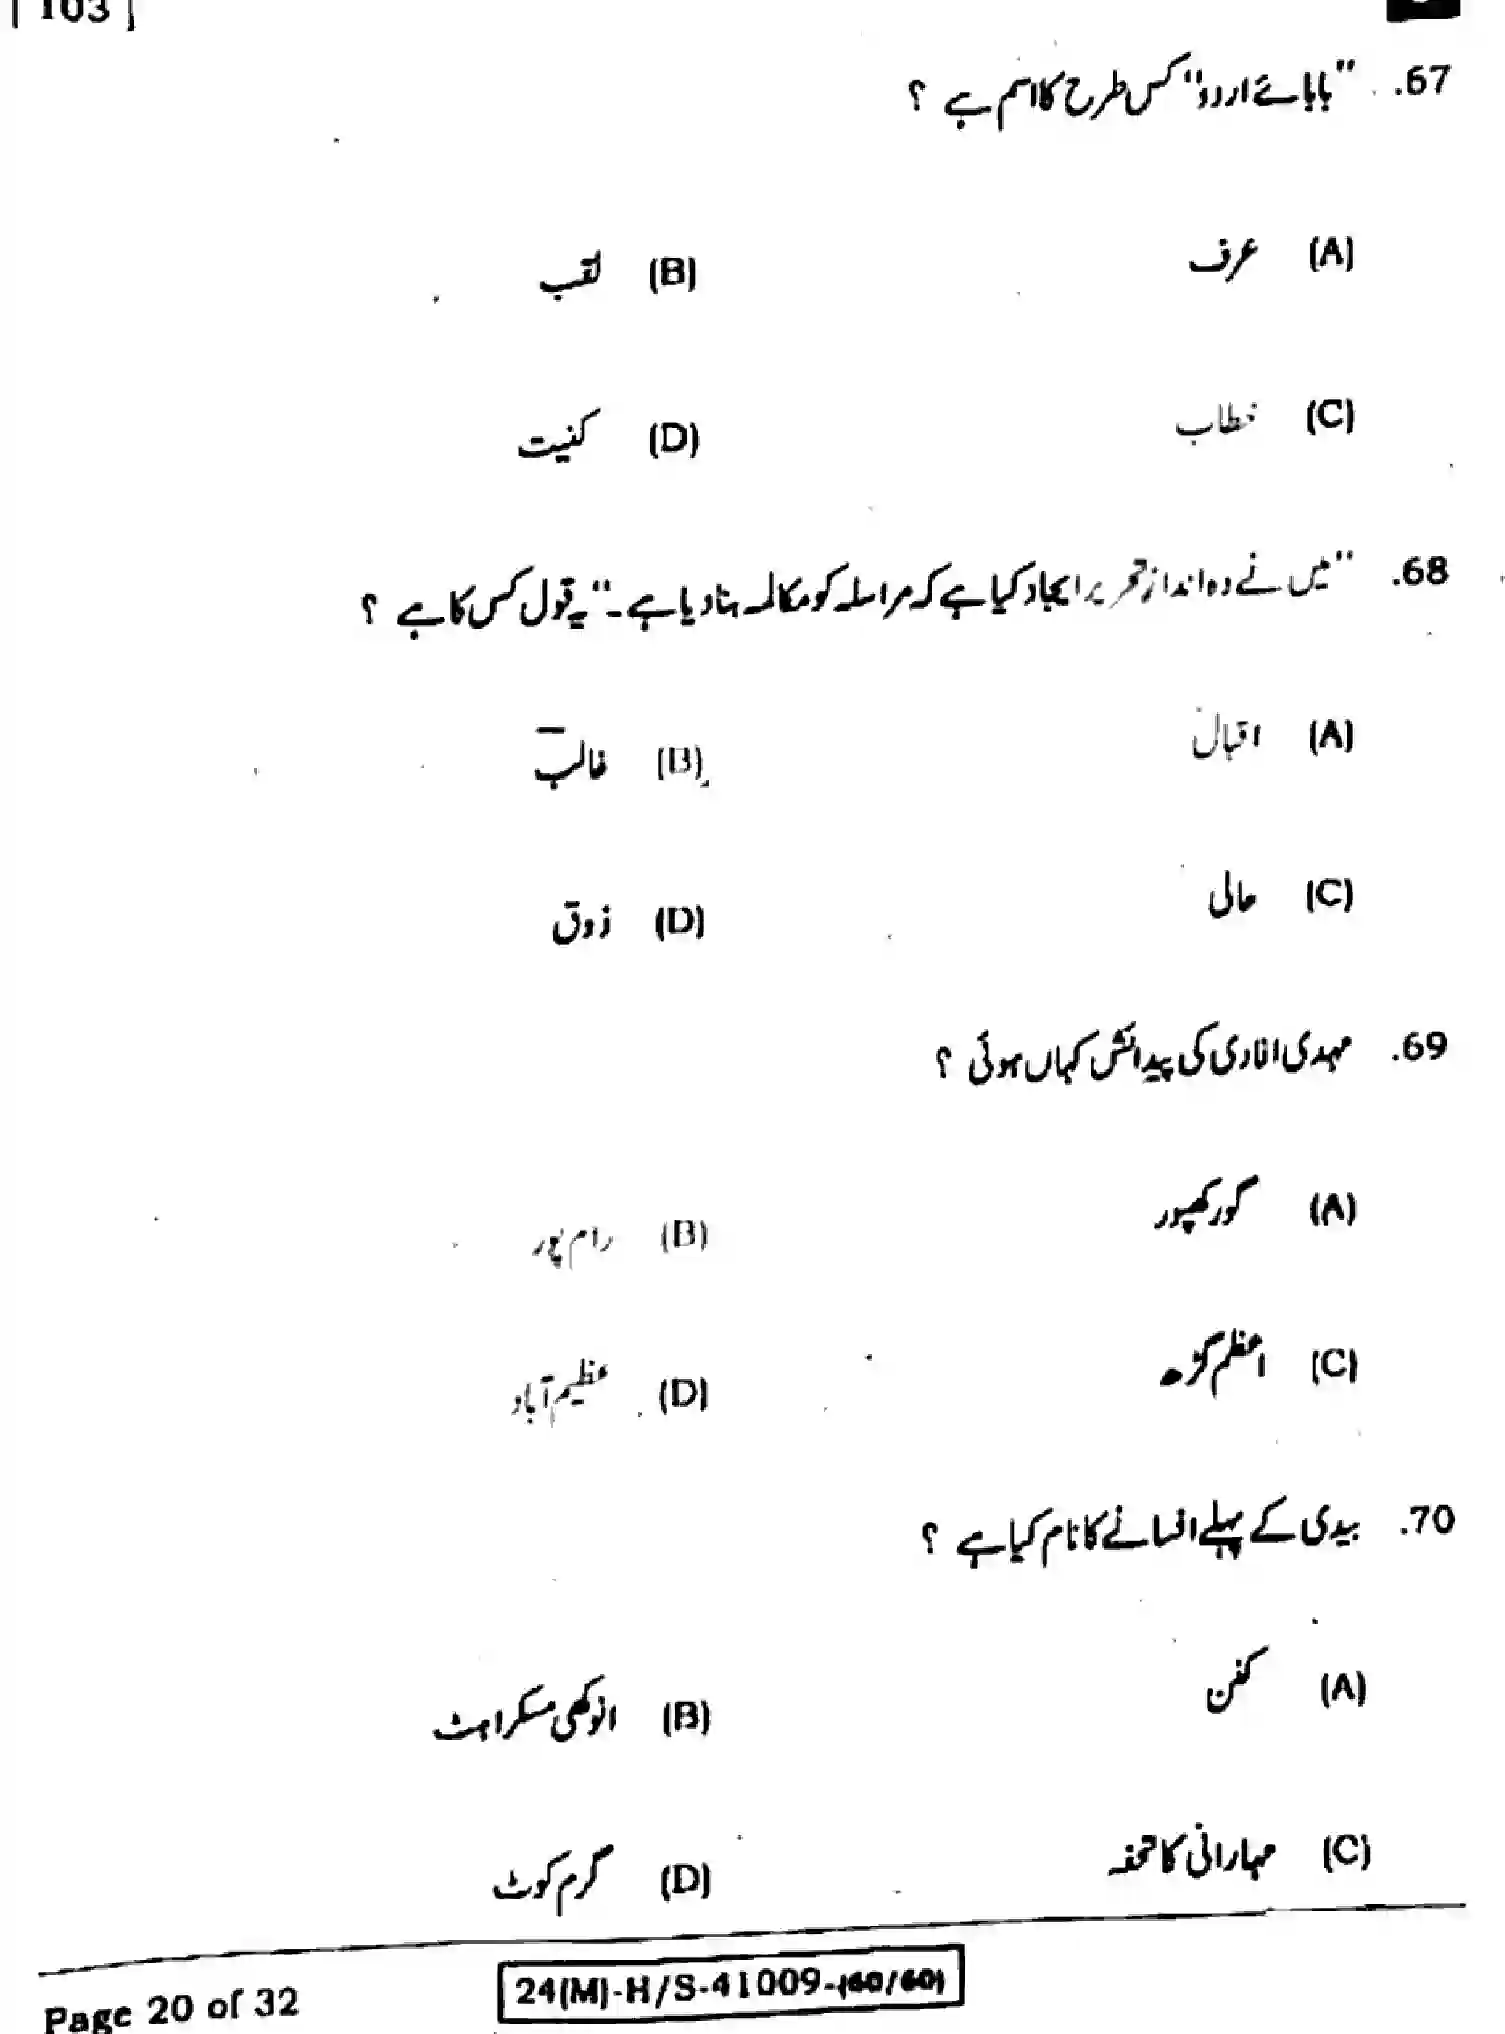 103
67. "بابائے اردو" کس طرح کا اسم ہے ؟
(A) عرف (B) لقب
(C) خطاب (D) کنیت
68. "میں نے وہ انداز تحریر ایجاد کیا ہے کہ مراسلہ کو مکالمہ بنا دیا ہے۔" یہ قول کس کا ہے ؟
(A) اقبال (B) غالب
(C) حالی (D) ذوق
69. مہدی افادی کی پیدائش کہاں ہوئی ؟
(A) گورکھپور (B) رام پور
(C) اعظم گڑھ (D) عظیم آباد
70. بیدی کے پہلے افسانے کا نام کیا ہے ؟
(A) کفن (B) انوکھی مسکراہٹ
(C) مہارانی کا تحفہ (D) گرم کوٹ
Page 20 of 32 24(M)-H/S-41009-(60/60)